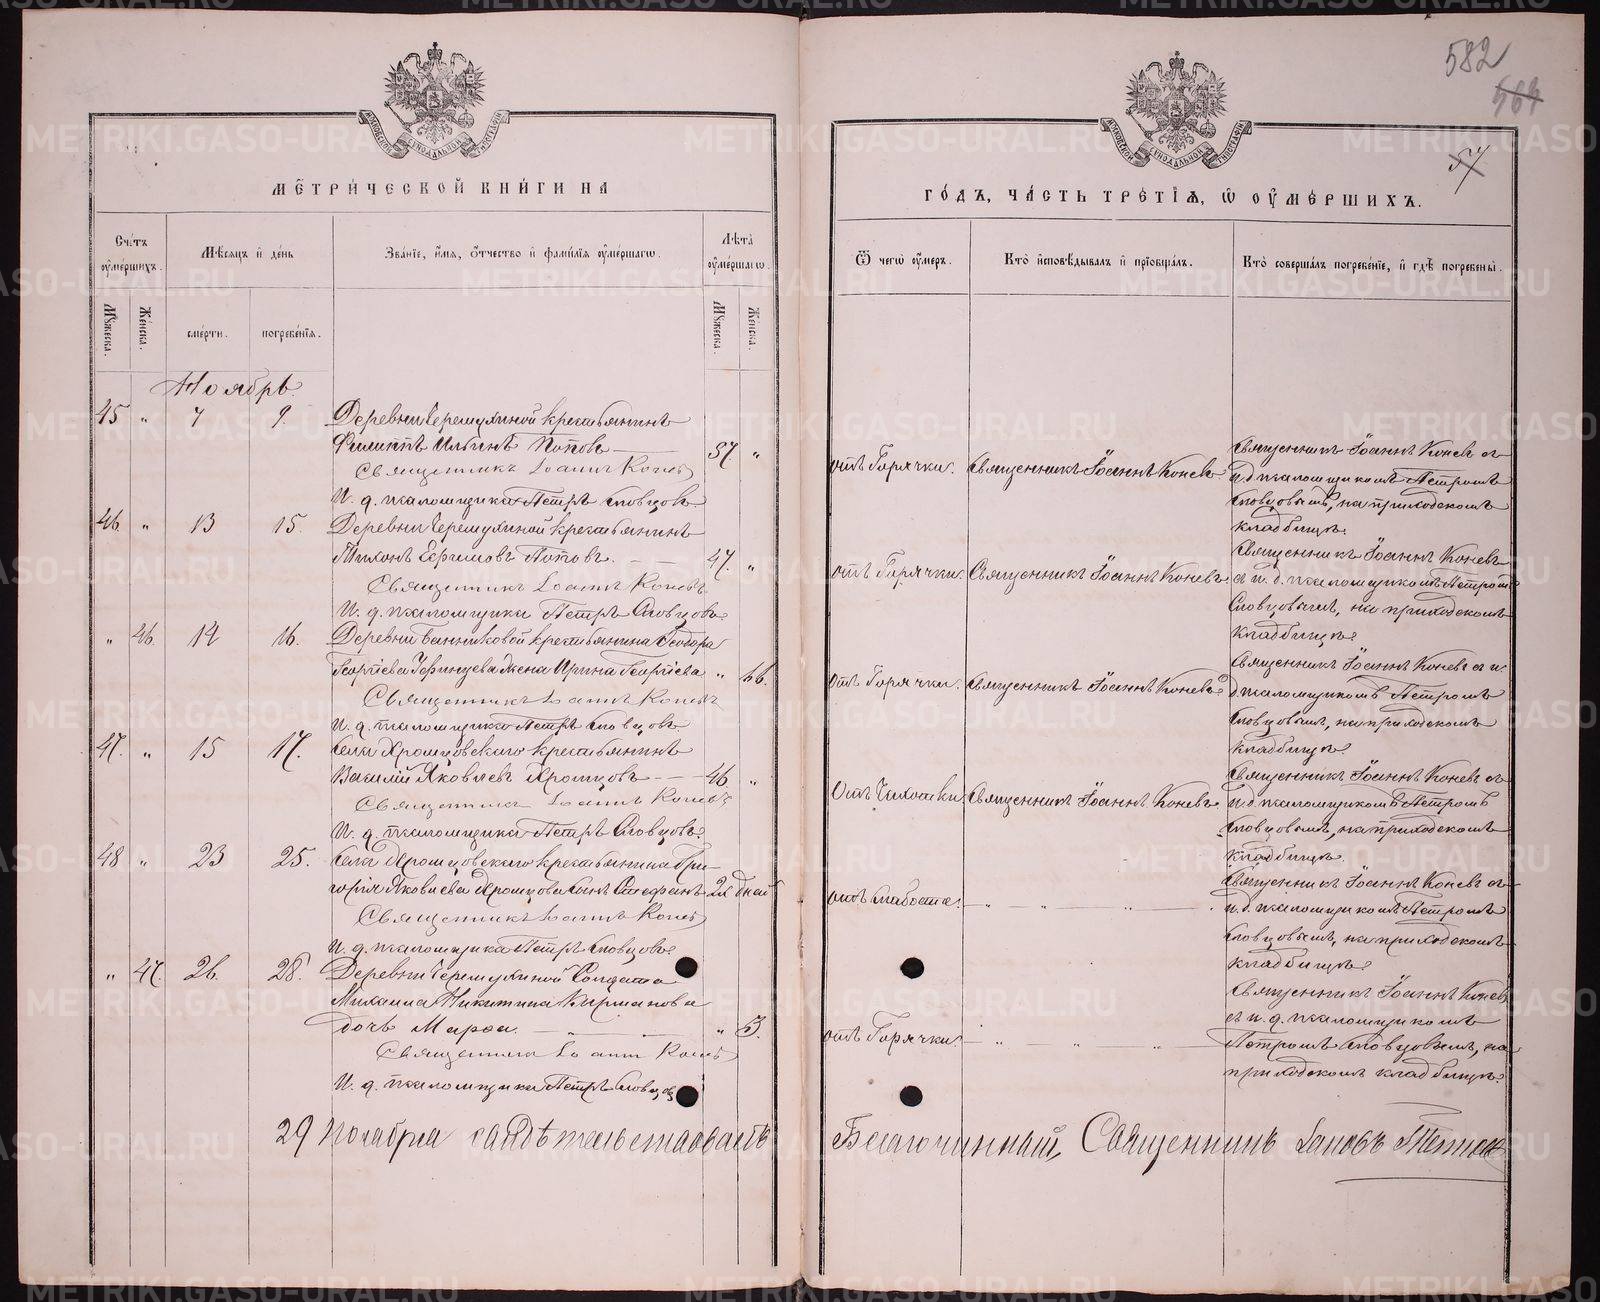 582
57
МЕТРИЧЕСКОЙ КНИГИ НА
ГОДЪ, ЧАСТЬ ТРЕТІЯ, Ѿ ОУМЕРШИХЪ.
Счетъ оумершихъ.
Мѣсяцъ и день
Званіе, имя, отчество и фамилія оумершагѡ.
Лѣта оумершагѡ.
Ѿ чегѡ оумеръ.
Кто исповѣдывалъ и пріобщалъ.
Кто совершалъ погребеніе, и гдѣ погребены.
Мужеска.
Женска.
смерти.
погребенія.
Мужеска.
Женска.
Ноябрь
45 " 7 9. Деревни Черемухиной крестьянинъ
Филиппъ Ильинъ Поповъ 57. "
Священникъ Іоаннъ Коневъ
И. д. псаломщика Петръ Словцовъ.
отъ Горячки. Священникъ Іоаннъ Коневъ
Священникъ Іоаннъ Коневъ съ
и.д. псаломщикомъ Петромъ
Словцовымъ, на приходскомъ
кладбищѣ.
46 " 13 15. Деревни Черемухиной крестьянинъ
Тихонъ Ефимовъ Поповъ. 47. "
Священникъ Іоаннъ Коневъ
И. д. псаломщика Петръ Словцовъ
отъ Горячки. Священникъ Іоаннъ Коневъ.
Священникъ Іоаннъ Коневъ
съ и. д. псаломщикомъ Петромъ
Словцовымъ, на приходскомъ
кладбищѣ
" 46. 14 16. Деревни Банниковой крестьянина Ѳеодора
Георгіева жена Ирина Георгіева " 66.
Священникъ Іоаннъ Коневъ
И. д. псаломщика Петръ Словцовъ.
отъ Горячки. Священникъ Іоаннъ Коневъ
Священникъ Іоаннъ Коневъ съ и.
д. псаломщикомъ Петромъ
Словцовымъ, на приходскомъ
кладбищѣ
47. " 15 17. Села Хромцовскаго крестьянинъ
Василій Яковлевъ Хромцовъ 46 "
Священникъ Іоаннъ Коневъ
И. д. псаломщика Петръ Словцовъ.
Отъ Чахотки Священникъ Іоаннъ Коневъ
Священникъ Іоаннъ Коневъ съ
и. д. псаломщикомъ Петромъ
Словцовымъ, на приходскомъ
кладбищѣ.
48 " 23 25. Села Хромцовскаго крестьянина Гри-
горія Яковлева Хромцова сынъ Стефанъ дней
Священникъ Іоаннъ Коневъ
И. д. псаломщика Петръ Словцовъ.
отъ слабости.
Священникъ Іоаннъ Коневъ съ
и. д. псаломщикомъ Петромъ
Словцовымъ, на приходскомъ
кладбищѣ
" 47. 26. 28. Деревни Черемухиной Солдата
Михаила Никитина Кирпанова
дочь Марѳа. " 3.
Священникъ Іоаннъ Коневъ
И. д. псаломщика Петръ Словцовъ
отъ Горячки.
Священникъ Іоаннъ Коневъ
съ и. д. псаломщикомъ
Петромъ Словцовымъ, на
приходскомъ кладбищѣ.
29 Ноября свидѣтельствовалъ Благочинный, Священникъ
METRIKI.GASO-URAL.RU